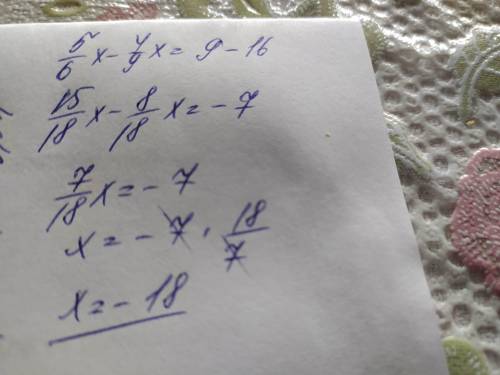 5/6 x - 4/9 x = 9 - 16
15/18 x - 8/18 x = - 7
7/18 x = - 7
x = - 7 · 18/7
x = - 18